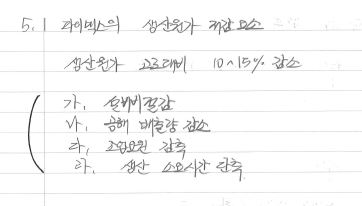 5.1 파이넥스의 생산원가 저감요소
생산원가 고로대비 10~15% 감소
가. 설비비절감
나. 공해 배출량 감소
다. 조업요원 감축
라. 생산 소요시간 단축